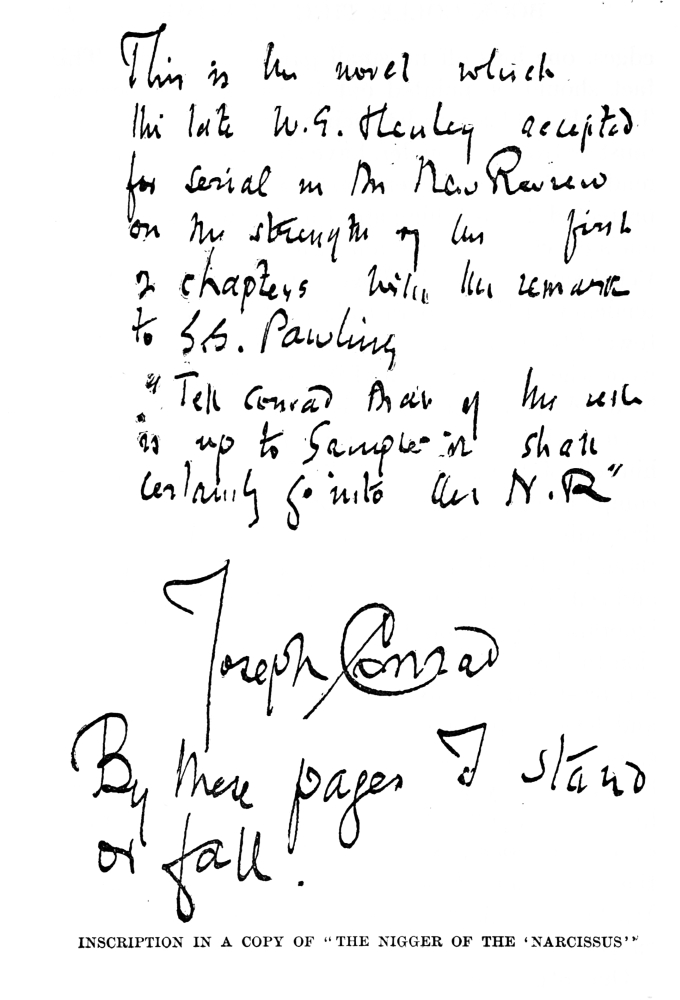 This is the novel which
the late W.E. Henley accepted
for serial in the New Review
on the strength of the first
2 chapters with the remark
to S.S. Pawling
"Tell Conrad that if the rest
is up to Sample it shall
certainly go into the N.R"
Joseph Conrad
By these pages I stand
or fall.
INSCRIPTION IN A COPY OF "THE NIGGER OF THE 'NARCISSUS'"